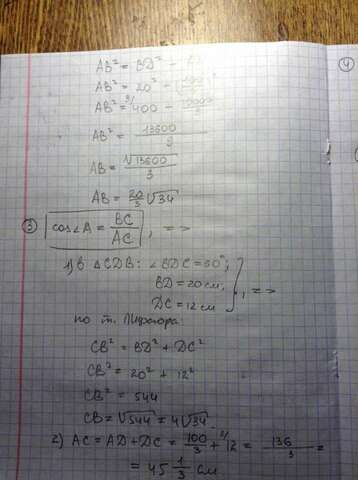 ④
AB² = BD² -
AB² = 20² -
AB² = ⁹⁾400 -
AB² = 13600 / 9
AB = √13600 / 3
AB = 20/3 √34
③ cos∠A = BC/AC, =>
1) В △CDB: ∠BDC = 90°;
BD = 20 см;
DC = 12 см
}, =>
по т. Пифагора
CB² = BD² + DC²
CB² = 20² + 12²
CB² = 544
CB = √544 = 4√34
2) AC = AD + DC = 100/3 + ³⁾12 = 136/3 =
= 45 1/3 см